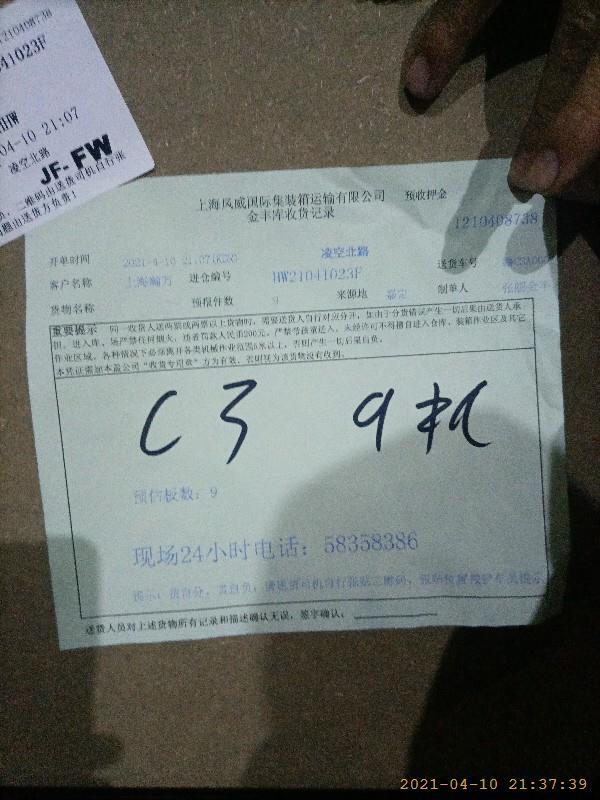 1210408738
41023F
04-10 21:07
凌空北路
JF-FW
二维码由送货司机自行张
由送货方负责!
上海风威国际集装箱运输有限公司 预收押金
金丰库收货记录
1210408738
凌空北路
开单时间 2021-4-10 21:07 送货车号
客户名称 上海瀚万 进仓编号 HW21041023F 制单人
货物名称 预报件数 9 来源地 嘉定
重要提示 同一收货人送两票或两票以上货物时,需要送货人自行对应分开,如由于分货错误产生一切后果由送货人承
担。进入库、场严禁任何烟火,违者罚款人民币200元。严禁带孩童进入,未经许可不得擅自进入仓库、装箱作业区及其它
作业区域。各种情况下必须离开各类机械作业范围5米以上,否则产生一切后果自负。
本凭证需加本盖公司“收货专用章”方为有效,否则视为该货物没有收到。
C3 9板
预估板数:9
现场24小时电话:58358386
送货人员对上述货物所有记录和描述确认无误,签字确认:
2021-04-10 21:37:39